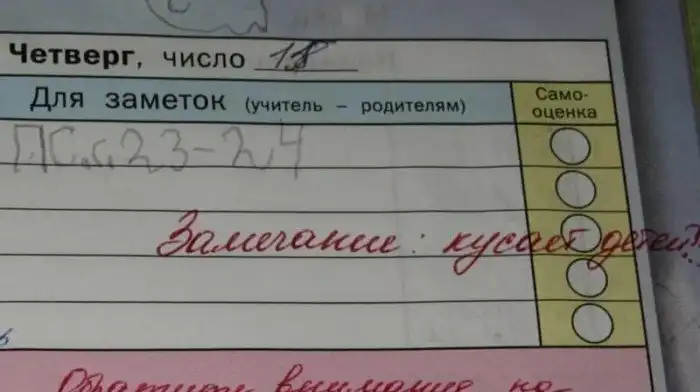 Четверг, число 18
Для заметок (учитель – родителям)
Само-
оценка
П.С.с.23-24
Замечание: кусает детей!
Обратите внимание на-